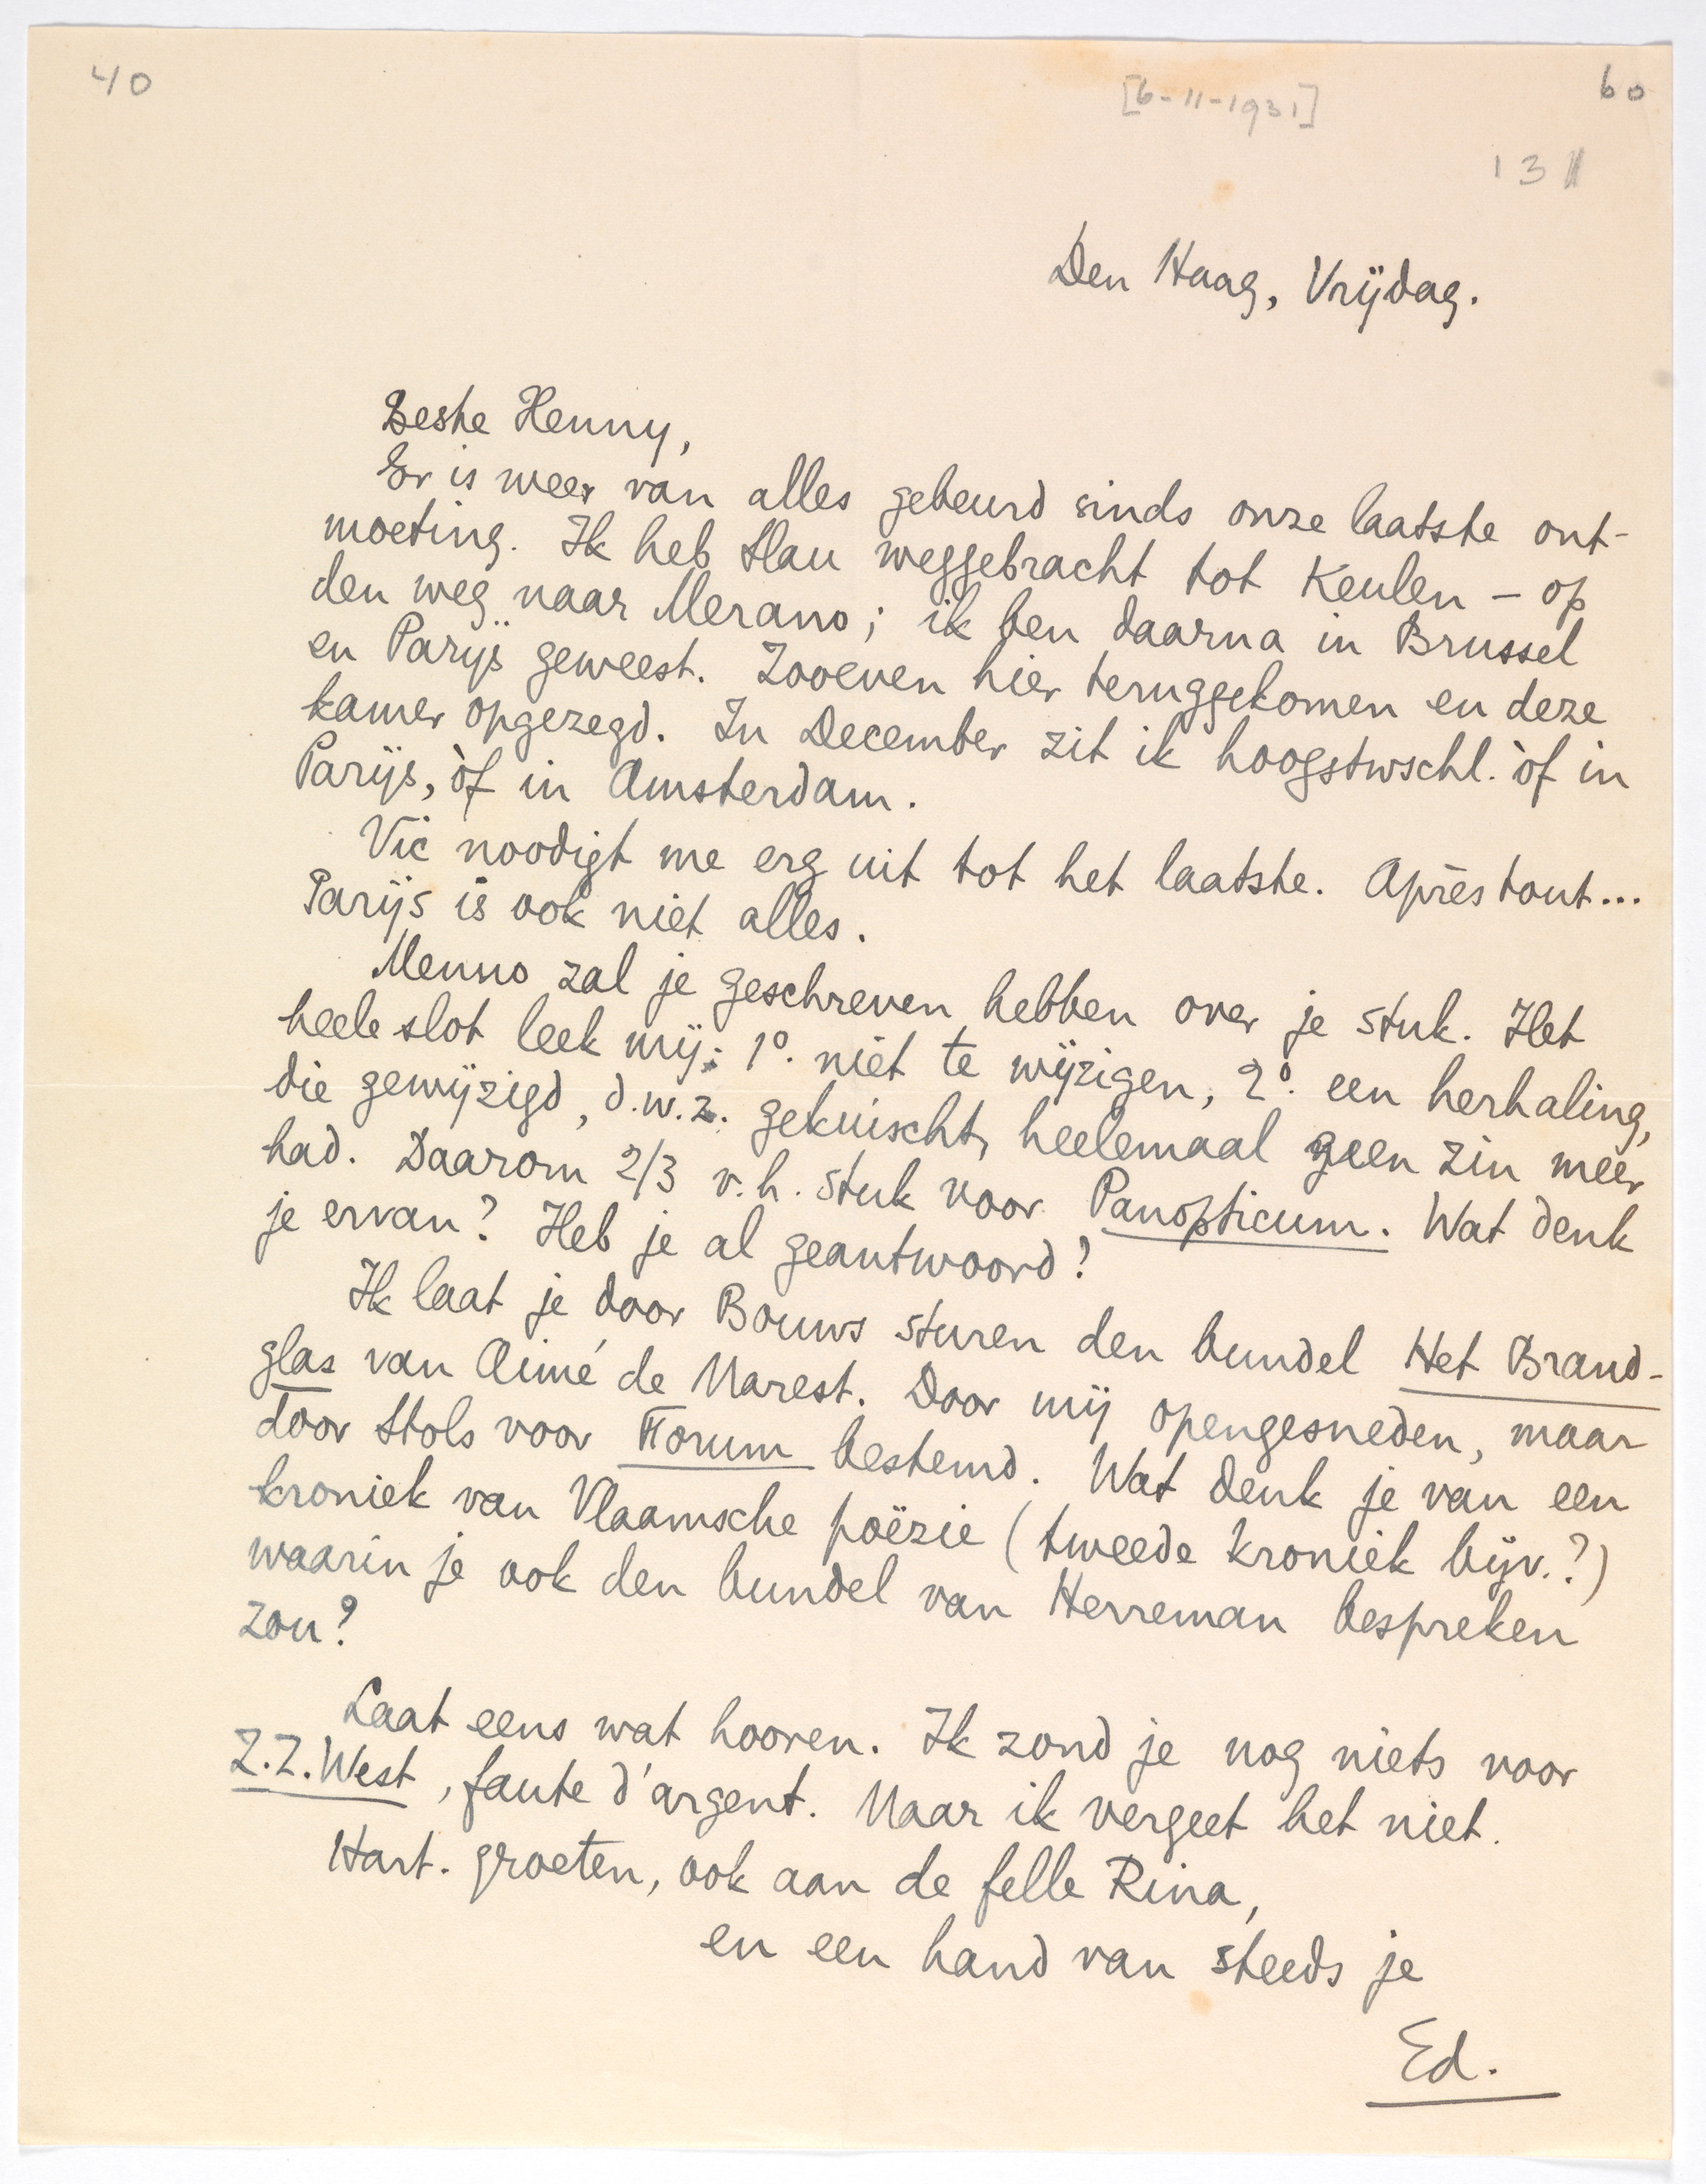 40
[6-11-1931]
60
131
Den Haag, Vrijdag.
Beste Henny,
Er is weer van alles gebeurd sinds onze laatste ont-
moeting. Ik heb Slau weggebracht tot Keulen – op
den weg naar Merano; ik ben daarna in Brussel
en Parijs geweest. Zooeven hier teruggekomen en deze
kamer opgezegd. In December zit ik hoogstwschl. òf in
Parijs, òf in Amsterdam.
Vic noodigt me erg uit tot het laatste. Après tout...
Parijs is ook niet alles.
Menno zal je geschreven hebben over je stuk. Het
heele slot leek mij: 1º. niet te wijzigen, 2º. een herhaling,
die gewijzigd, d.w.z. gekuischt, heelemaal geen zin meer
had. Daarom 2/3 v.h. stuk voor Panopticum. Wat denk
je ervan? Heb je al geantwoord?
Ik laat je door Bouws sturen den bundel Het Brand-
glas van Aimé de Marest. Door mij opengesneden, maar
door Stols voor Forum bestemd. Wat denk je van een
kroniek van Vlaamsche poëzie (tweede kroniek bijv.?)
waarin je ook den bundel van Herreman bespreken
zou?
Laat eens wat hooren. Ik zond je nog niets voor
Z.Z.West, faute d'argent. Maar ik vergeet het niet.
Hart. groeten, ook aan de felle Rina,
en een hand van steeds je
Ed.